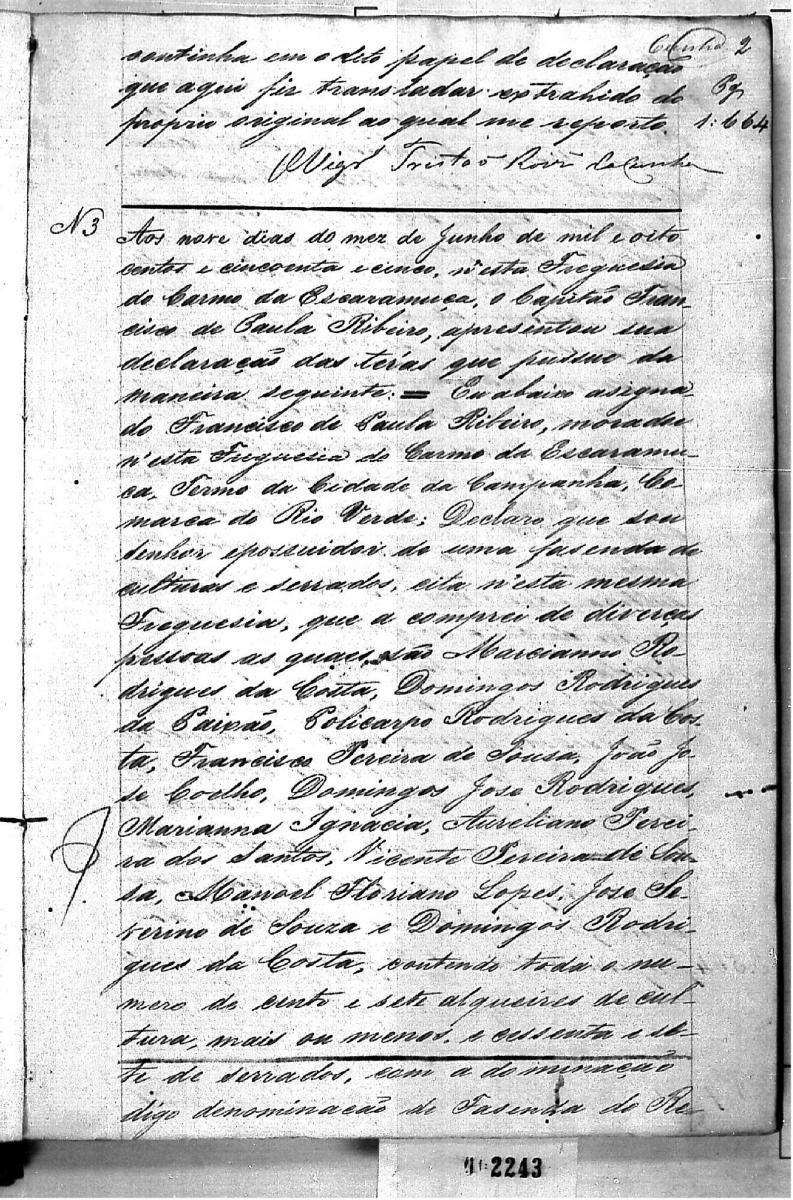 Cunha 2
continha em o dito papel de declaração
que aqui fiz transladar extrahido do
proprio original ao qual me reporto.
Pg
1:664
O Vigrº Tristaõ da Cunha
N 3
Aos nove dias do mez de Junho de mil e oito
centos e cincoenta e cinco, n'esta Freguesia
do Carmo da Escaramuça, o Capitão Fran
cisco de Paula Ribeiro, apresentou sua
declaração das teras que pussue da
maneira seguinte. = Eu abaixo asigna-
do Francisco de Paula Ribeiro, morador
n'esta Freguesia do Carmo da Escaramu-
ca, Termo da Cidade da Campanha, Co-
marca do Rio Verde; Declaro que sou
senhor epossuidor de uma fasenda de
culturas e serrados, cita n'esta mesma
Freguesia, que a comprei de diverças
pessoas as quaes são Marcianno Ro-
drigues da Costa, Domingos Rodrigues
da Paixão, Policarpo Rodrigues da Cos-
ta, Francisco Pereira de Sousa, João Jo-
se Coelho, Domingos Jose Rodrigues,
Marianna Ignacia, Aureliano Perei-
ra dos Santos, Vicente Pereira de Sou-
sa, Manoel Floriano Lopes, Jose Se-
verino de Souza e Domingos Rodri-
gues da Costa, contendo toda o nu-
mero de cento e sete alqueires de cul-
tura, mais ou menos, e cessenta e se-
te de serrados, com a dominação
digo denominação de Fasenda do Re-
2243